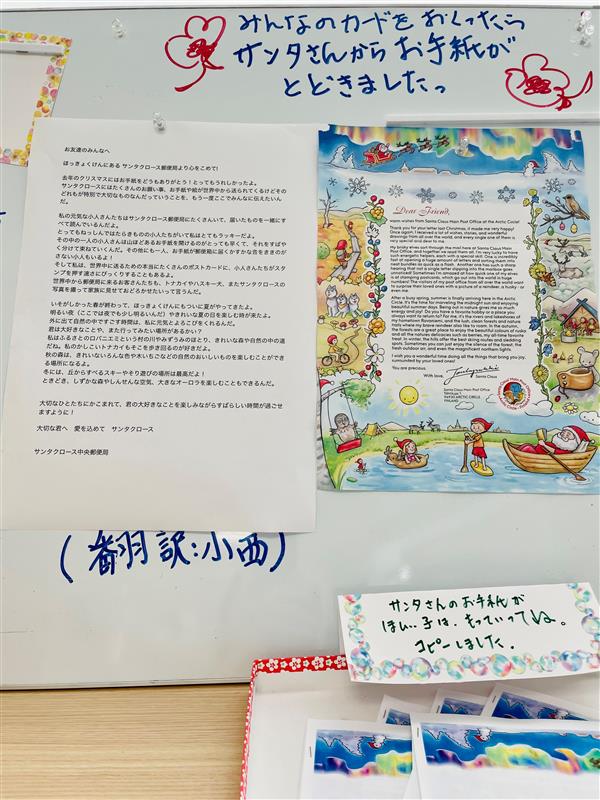 みんなのカードをおくったら
サンタさんからお手紙が
とどきましたっ
お友達のみんなへ
ほっきょくけんにある サンタクロース郵便局より心をこめて!
去年のクリスマスにはお手紙をどうもありがとう!とってもうれしかったよ。
サンタクロースにはたくさんのお願い事、お手紙や絵が世界中から送られてくるけどその
どれもが特別で大切なものなんだっていうことを、もう一度ここでみんなに伝えたいん
だ。
私の元気な小人さんたちはサンタクロース郵便局にたくさんいて、届いたものを一緒にす
べて読んでいるんだよ。
とってもねっしんではたらきものの小人たちがいて私はとてもラッキーだよ。
その中の一人の小人さんは山ほどあるお手紙を開けるのがとっても早くて、それをすばや
く分けて束ねていくんだ。その他にも一人、お手紙が郵便局に届くかすかな音をききのが
さない小人もいるよ!
そして私は、世界中に送るための本当にたくさんのポストカードに、小人さんたちがスタ
ンプを押す速さにびっくりすることもあるよ。
世界中から郵便局に来るお客さんたちも、トナカイやハスキー犬、またサンタクロースの
写真を撮って家族に見せておどろかせたいって言うんだ。
いそがしかった春が終わって、ほっきょくけんにもついに夏がやってきたよ。
明るい夜(ここでは夜でも少し明るいんだ)やきれいな夏の日を楽しむ時が来たよ。
外に出て自然の中ですごす時間は、私に元気とよろこびをくれるんだ。
君は大好きなことや、また行ってみたい場所があるかい?
私はふるさとのロバニエミという村の川やみずうみのほとり、きれいな森や自然の中の道
だね。私のかしこいトナカイもそこを歩き回るのが好きだよ。
秋の森は、きれいないろんな色や木いちごなどの自然のおいしいものを楽しむことができ
る場所になるよ。
冬には、丘からすべるスキーやそり遊びの場所は最高だよ!
ときどき、しずかな森やしんせんな空気、大きなオーロラを楽しむこともできるんだ。
大切なひとたちにかこまれて、君の大好きなことを楽しみながらすばらしい時間が過ごせ
ますように!
大切な君へ 愛を込めて サンタクロース
サンタクロース中央郵便局
(翻訳:小西)
Dear Friend,
warm wishes from Santa Claus Main Post Office at the Arctic Circle!
Thank you for your letter last Christmas, it made me very happy!
Once again, I received a lot of wishes, stories, and wonderful
drawings from all over the world, and every single one of them is
very special and dear to me.
After a busy spring, summer is finally arriving here in the Arctic
Circle. It's the time for marveling the midnight sun and enjoying
beautiful summer days. Being out in nature gives me so much
energy and joy! Do you have a favorite hobby or a place you
always want to return to? For me, it's the rivers and lakeshores of
my hometown Rovaniemi, and the lush, clean forests and nature
trails where my brave reindeer also like to roam. In the autumn,
I wish you a wonderful time doing all the things that bring you joy,
surrounded by your loved ones!
You are precious.
With love,
Santa Claus
Santa Claus Main Post Office
Tähtikuja 1
96930 ARCTIC CIRCLE
FINLAND
サンタさんのお手紙が
ほしい子は、もっていってね。
コピーしました。